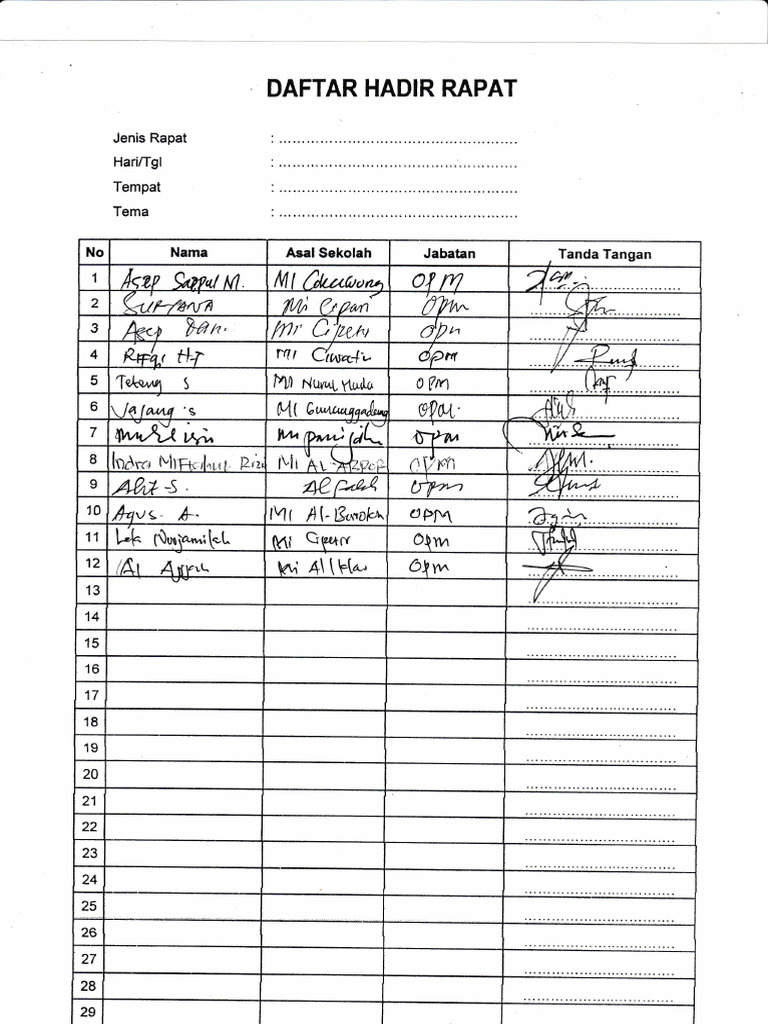 DAFTAR HADIR RAPAT
Jenis Rapat : ......................................................
Hari/Tgl : ......................................................
Tempat : ......................................................
Tema : ......................................................
No Nama Asal Sekolah Jabatan Tanda Tangan
1 Asep Saepul M. MI OPM
2 SURYANA Mi Cipari OPM
3 Asep Dan. MI Cipeti OPM
4 Rifqi HT MI Ciwatu OPM
5 Teteng S MI Nurul Huda OPM
6 Jajang S MI Gununggadung OPM.
7 Muhlisin MI OPM
8 Indra Miftahul Rizi MI AL- OPM
9 Alit S. Al falah OPM
10 Agus. A. MI Al-Barokah OPM
11 Nurjamilah Mi OPM
12 Mi OPM
13
14
15
16
17
18
19
20
21
22
23
24
25
26
27
28
29